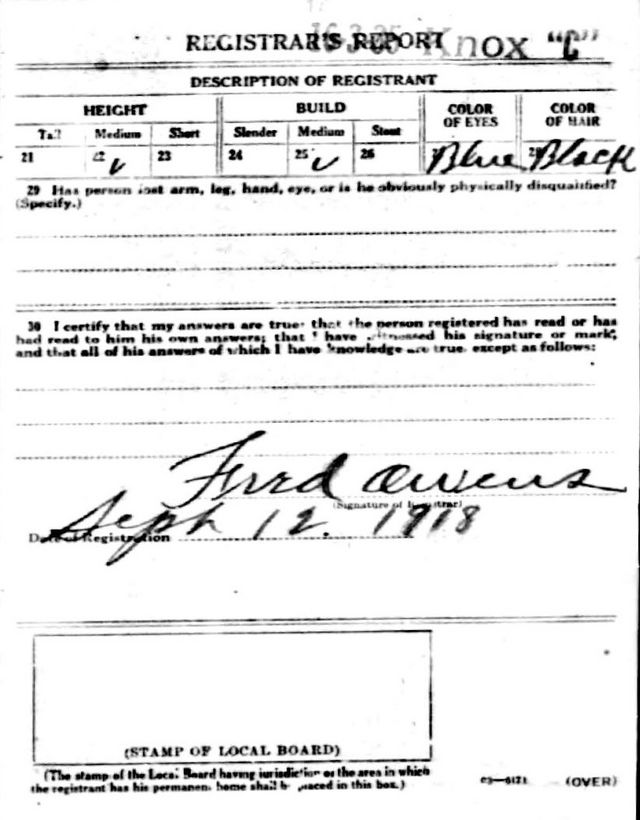 16-3-25 Knox "C"
REGISTRAR'S REPORT
DESCRIPTION OF REGISTRANT
HEIGHT BUILD COLOR OF EYES COLOR OF HAIR
Tall Medium Short Slender Medium Stout
21 22 ✓ 23 24 25 ✓ 26 Blue 28 Black
29 Has person lost arm, leg, hand, eye, or is he obviously physically disqualified?
(Specify.)
30 I certify that my answers are true; that the person registered has read or has
had read to him his own answers; that I have witnessed his signature or mark,
and that all of his answers of which I have knowledge are true, except as follows:
Fred Owens
(Signature of Registrar)
Date of Registration Sept 12. 1918
(STAMP OF LOCAL BOARD)
(The stamp of the Local Board having jurisdiction of the area in which
the registrant has his permanent home shall be placed in this box.)
03—6171 (OVER)